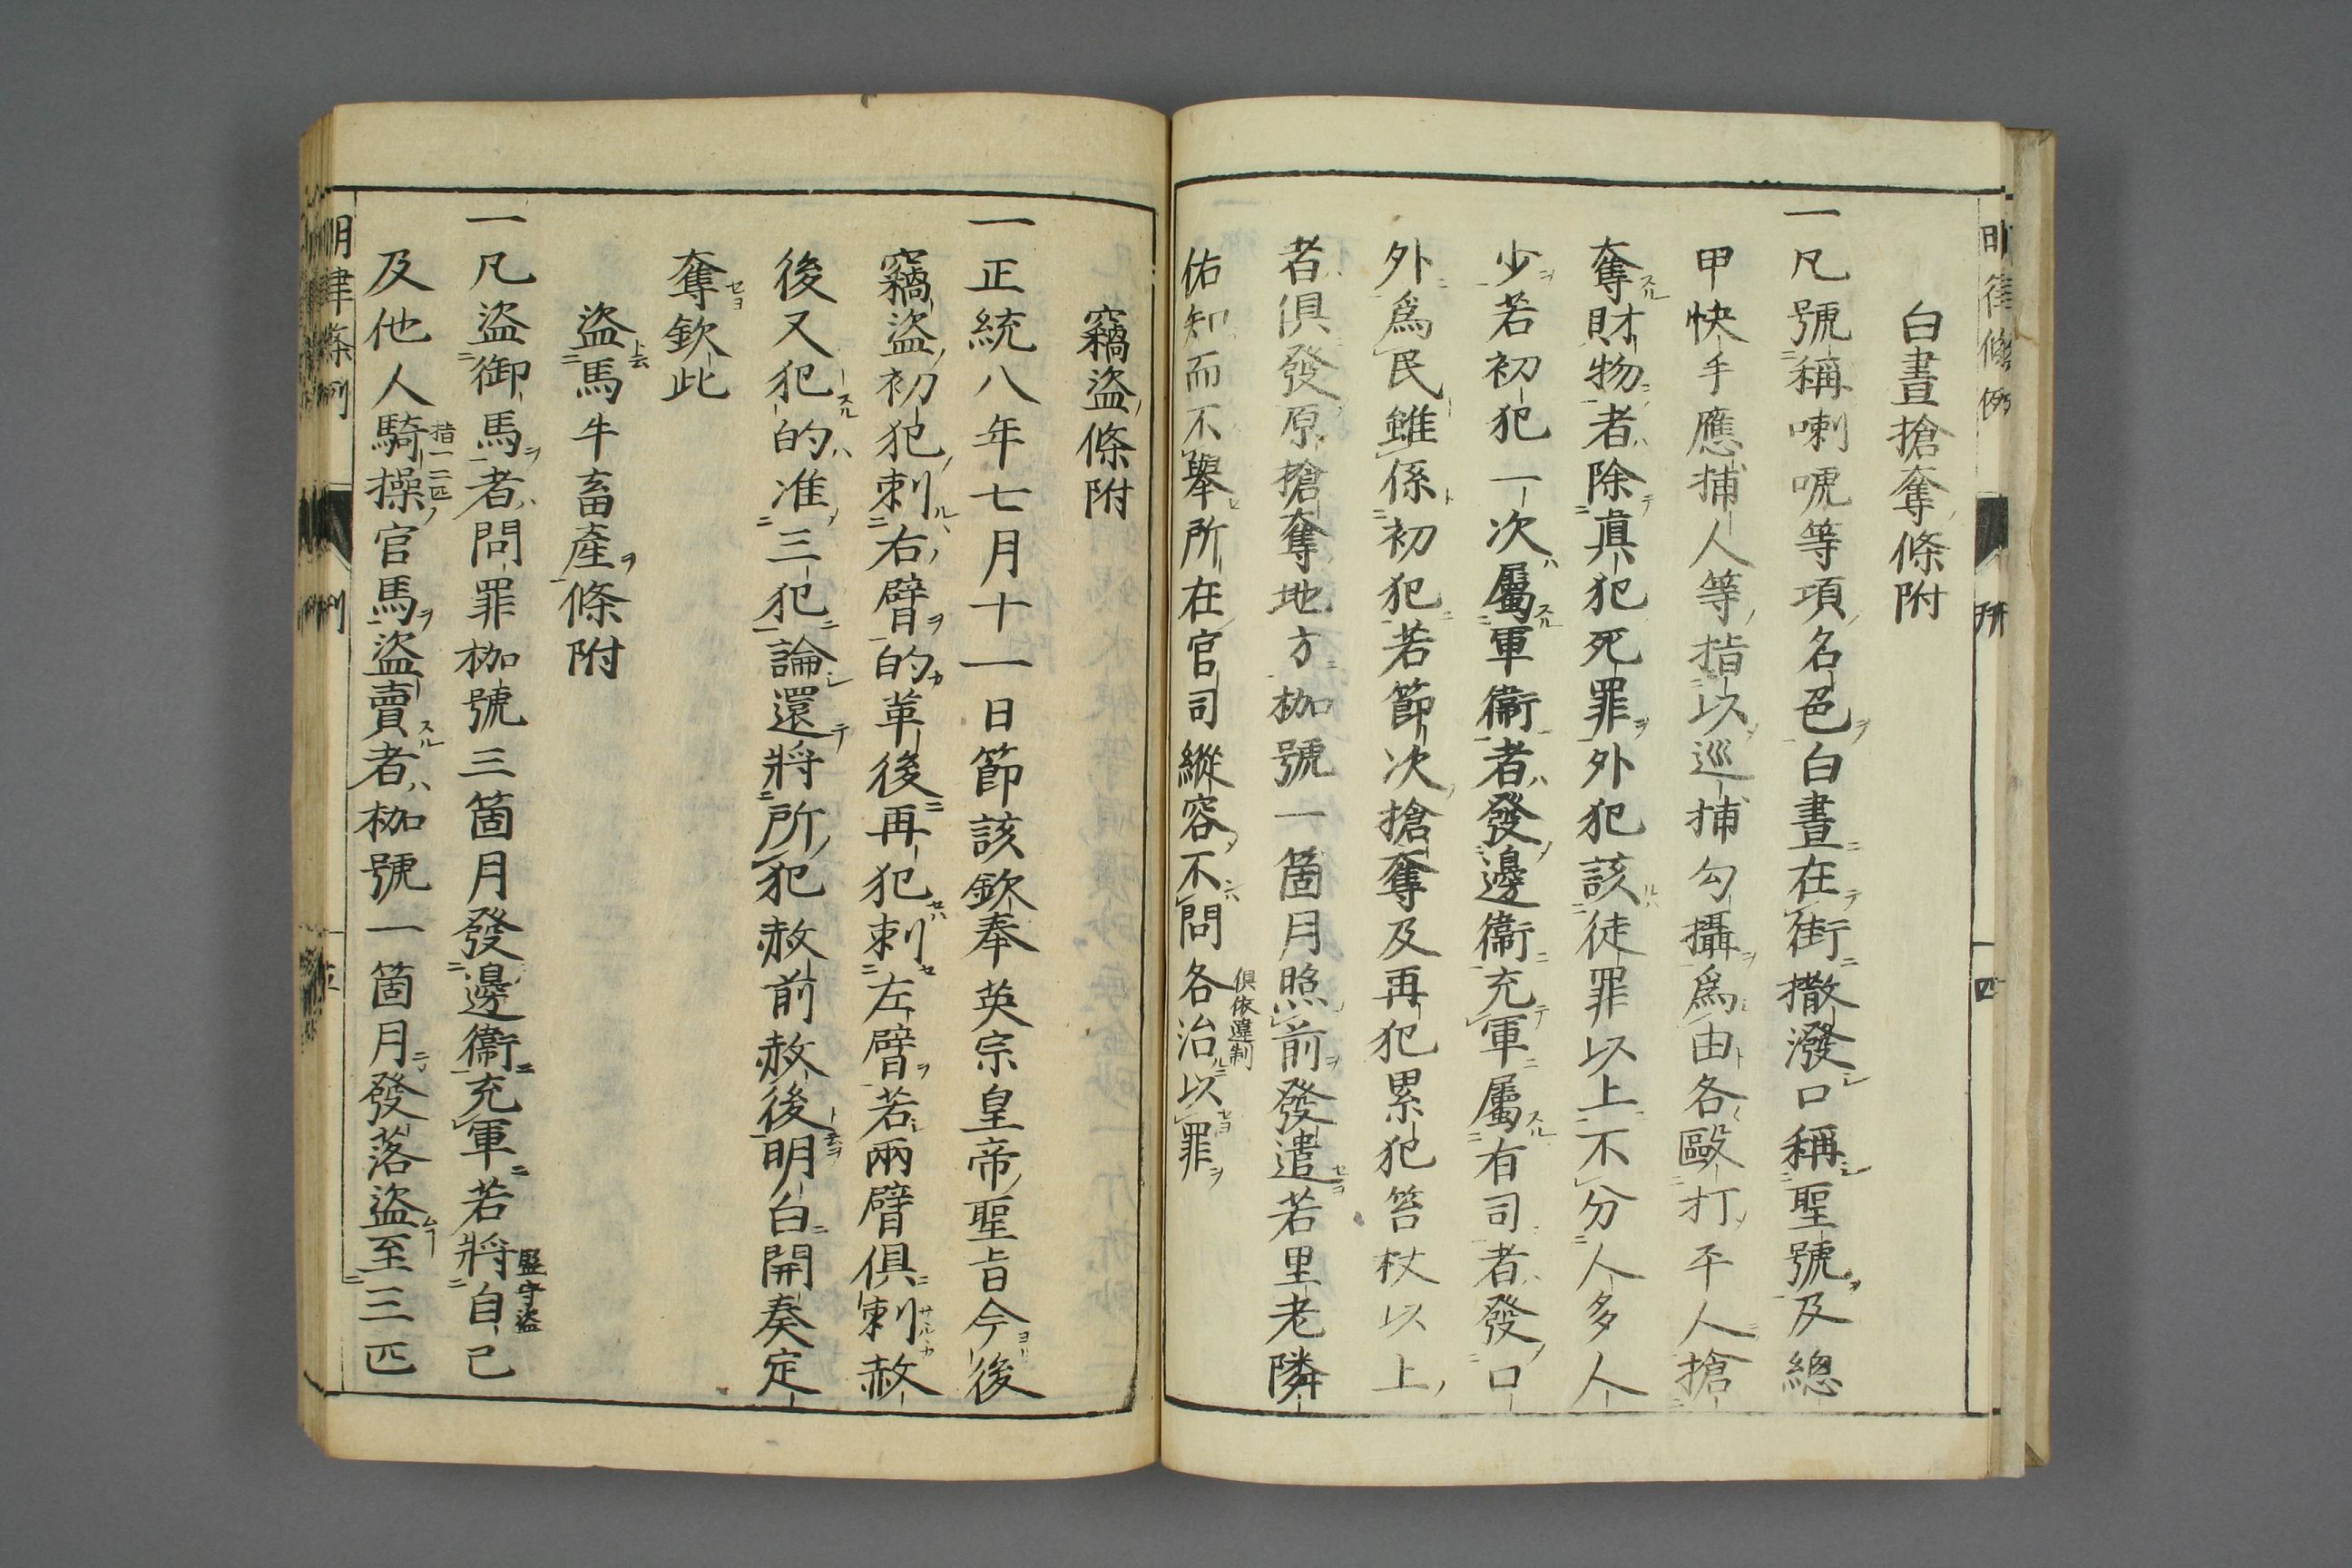 白晝搶奪條附
一凡號稱喇唬等項名色白晝在街撒潑口稱聖號及總
甲快手應捕人等指以巡捕勾攝爲由各毆打平人搶
奪財物者除真犯死罪外犯該徒罪以上不分人多人
少若初犯一次屬軍衞者發邊衞充軍屬有司者發口
外爲民雖係初犯若節次搶奪及再犯累犯笞杖以上
者俱發原搶奪地方枷號一箇月照前發遣若里老隣
佑知而不舉所在官司縱容不問各治以罪
俱依違制
竊盜條附
一正統八年七月十一日節該欽奉英宗皇帝聖旨今後
竊盜初犯刺右臂的革後再犯刺左臂若兩臂俱刺赦
後又犯的准三犯論還將所犯赦前赦後明白開奏定
奪欽此
盜馬牛畜產條附
一凡盜御馬者問罪枷號三箇月發邊衞充軍若將自己
監守盜
及他人騎操官馬盜賣者枷號一箇月發落盜至三匹
指一二匹
明律條例
刑